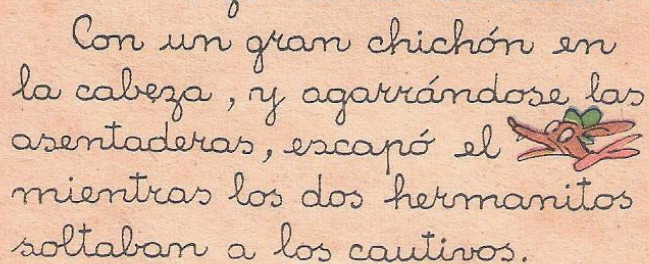 Con un gran chichón en
la cabeza, y agarrándose las
asentaderas, escapó el
mientras los dos hermanitos
soltaban a los cautivos.